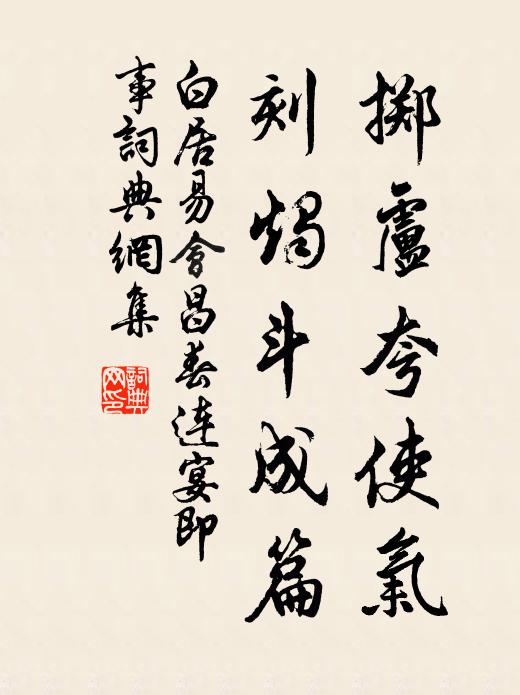 擲盧夸使氣
刻燭斗成篇
白居易會昌春連宴即
事詞典網集
詞典
网印